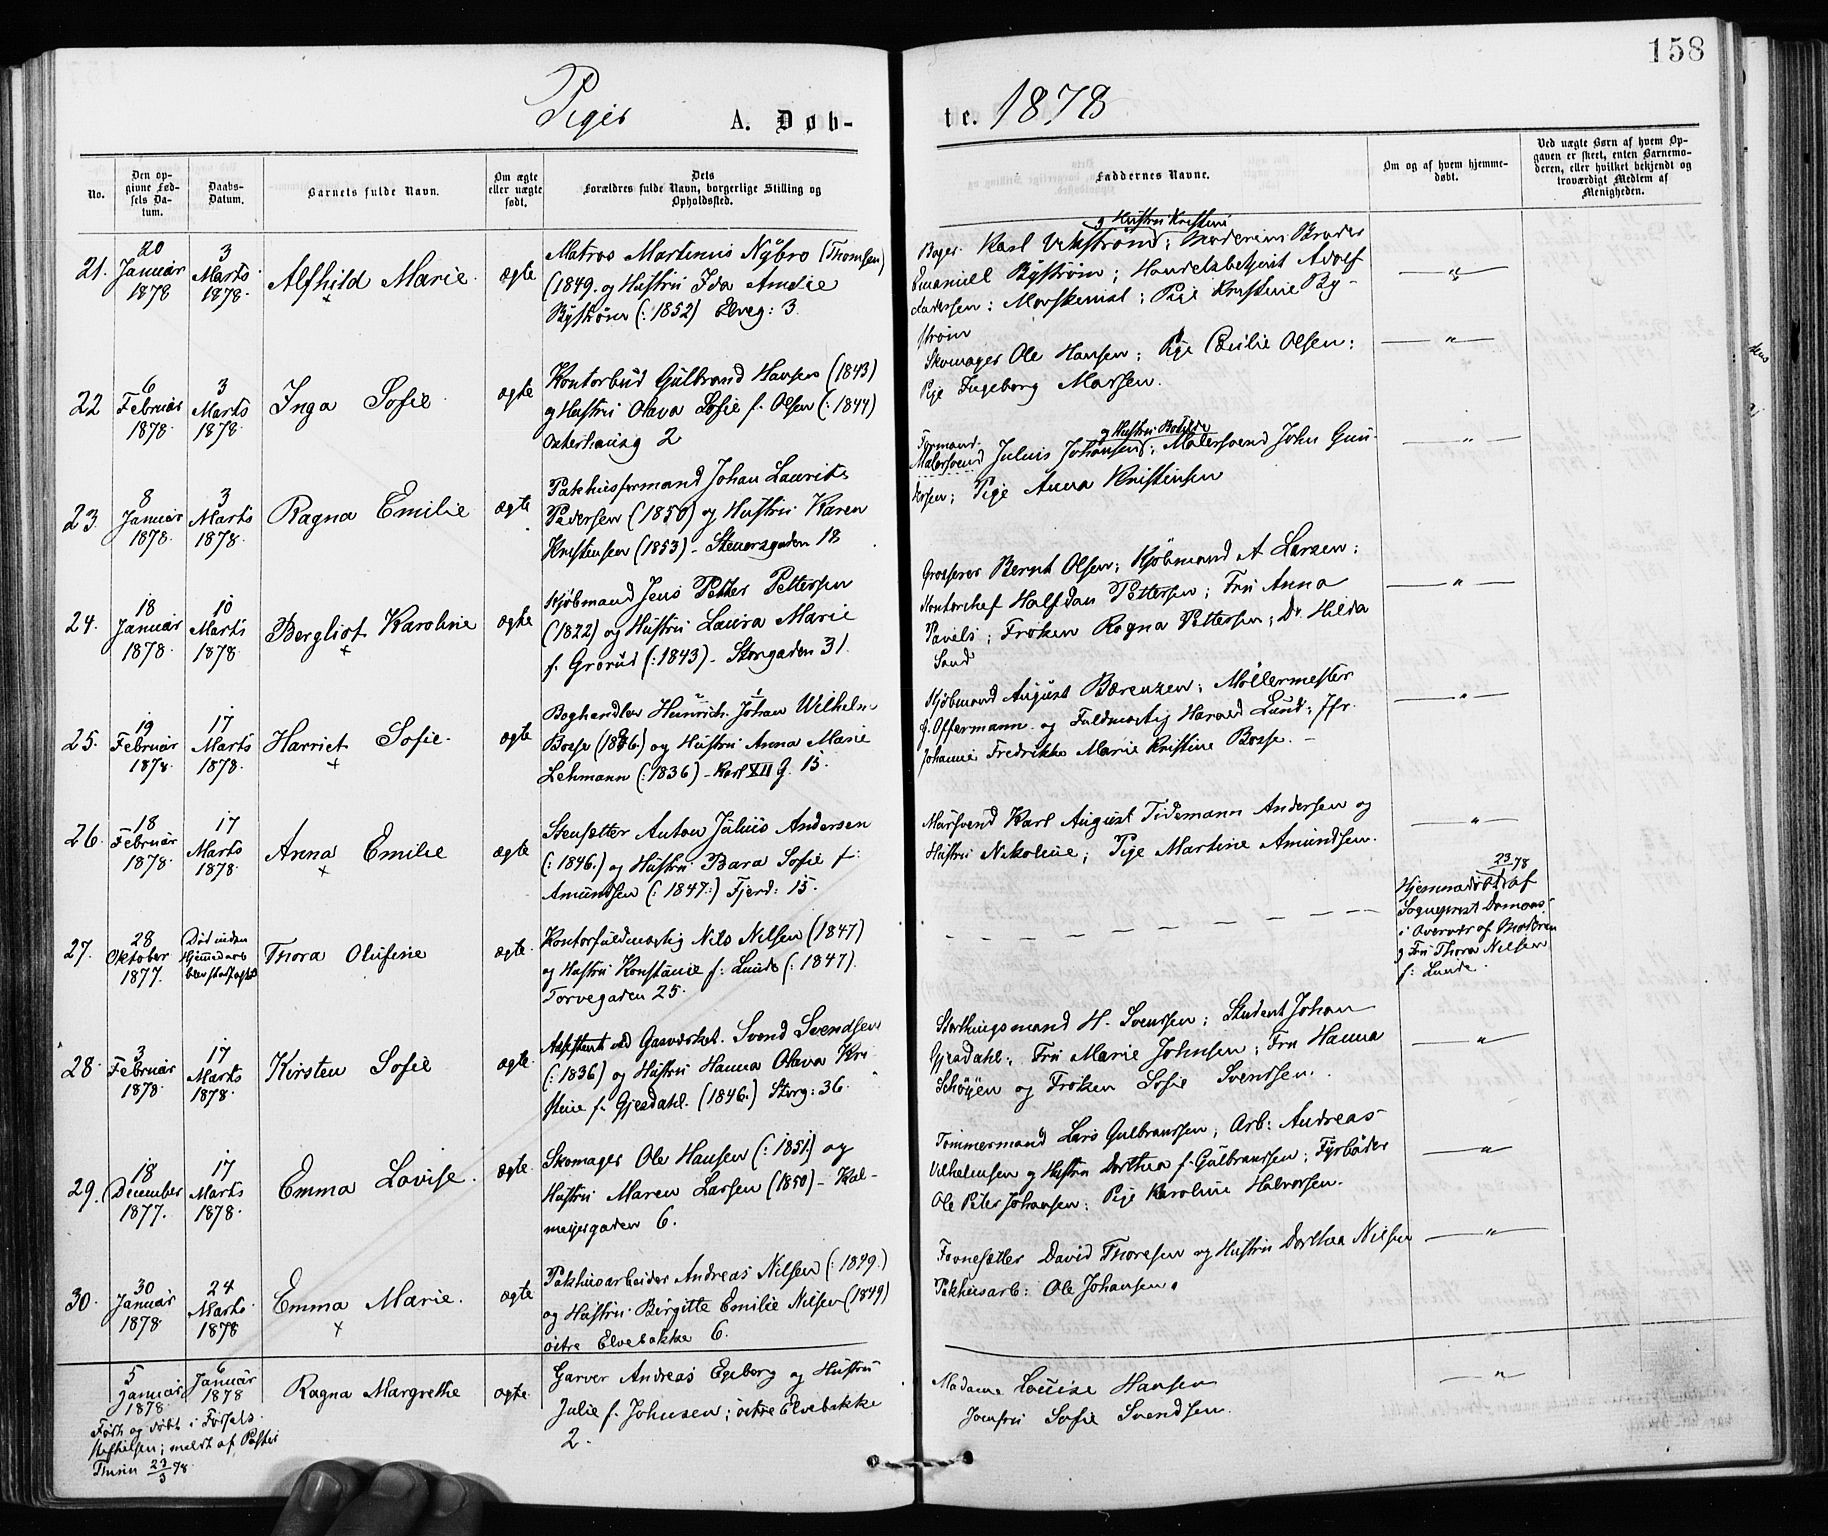 158
Piger A. Døb- te. 1878
No.
Den op-
givne Fød-
sels Da-
tum.
Daabs-
Datum.
Barnets fulde Navn.
Om ægte
eller uægte
født.
Dets
Forældres fulde Navn, borgerlige Stilling og
Opholdssted.
Faddernes Navne.
Om og af hvem hjemme-
døbt.
Ved uægte Børn af hvem Op-
gaven er skeet, enten Barnemo-
deren, eller hvilket bekjendt og
troværdigt Medlem af
Menigheden.
21.
20
Januar
1878
3
Marts
1878.
Alfhild Marie
ægte
Matros Martinus Nybro (Thomsen)
(1849. og Hustru Ida Amalie
Byström (: 1852) Elveg: 3.
og Hustru Kristine
Bager Karl Vikström; Moderens Broder
Emanuel Byström; Handelsbetjent Adolf
Pige Kristine By-
ström
"
22
6
Februar
1878.
3
Marts
1878.
Inga Sofie
ægte
Kontorbud Gulbrand Hansen (1843)
og Hustru Olava Sofie f. Olsen (: 1844)
Osterhausg 2
Skomager Ole Hansen; Pige Cecilie Olsen;
Pige Ingeborg Marsen.
"
23
8
Januar
1878.
3
Marts
1878.
Ragna Emilie
ægte
Pakhusformand Johan Laurits
Pedersen (1850) og Hustru Karen
Kristensen (1853) - Stenersgaden 18
Formand.
og Hustru Botilde
Malersvend Julius Johansen; Malersvend John Gun-
dersen; Pige Anna Kristensen
"
24.
18
Januar
1878.
10
Marts
1878.
Bergliot Karoline
ægte
Kjøbmand Jens Petter Pettersen
(1822) og Hustru Laura Marie
f. Grorud (: 1843) - Storgaden 31.
Grosserer Bernt Olsen; Kjøbmand A Larsen;
Kontorchef Halfdan Pettersen; Fru Anna
Pavels; Frøken Ragna Pettersen; Do Hilda
Sand
"
25.
19
Februar
1878.
17
Marts
1878.
Harriet Sofie.
ægte
Boghandler Heinrich Johan Wilhelm
Bosse (1836.) og Hustru Anna Marie
Lehmann (: 1836) - Karl XII G. 15.
Kjøbmand August Bærenzen; Møllermester
g. Offermann og Fuldmægtig Harald Lund; Jfr.
Johanne Fredrikke Marie Kristine Bosse. -
"
26.
18
Februar
1878.
17
Marts
1878.
Anna Emilie
ægte
Stensætter Anton Julius Andersen
(: 1846.) og Hustru Bara Sofie f.
Amundsen (: 1847:) Fjerd: 15.
Mursvend Karl August Tidemann Andersen og
Hustru Nikoline; Pige Martine Amundsen.
"
27.
28
Oktober
1877.
Død inden
Hjemmedaab
blev stadfæstet
Thora Olufine
ægte.
Kontorfuldmægtig Nils Nilsen (1847)
og Hustru Konstance f: Lunde (: 1847).
Torvegaden 25.
23/78
Hjemmedøbt af
Sogneprest
i Overvær af Moderen
og Fru Thora Nilsen
f: Lunde.
28.
3
Februar
1878.
17
Marts
1878.
Kirsten Sofie
ægte.
Assistent ved Gasværket. Svend Svendsen
(: 1836) og Hustru Hanna Olava Kri-
stine f. Gjesdahl. (1846.) Storg: 36.
Storthingsmand H. Svendsen; Student Johan
Gjesdahl; Fru Marie Johnsen; Fru Hanna
Schøyen og Frøken Sofie Svendsen.
"
29.
18
December
1877.
17
Marts
1878.
Emma Lovise.
ægte.
Skomager Ole Hansen (: 1851.) og
Hustru Maren Larsen (1850) - Kal-
meyersgaden 6.
Tømmermand Lars Gulbranssen; Arb: Andreas
Vilhelmsen og Hustru Dorthea f. Gulbranssen; Fyrbøder
Ole Peter Johansen; Pige Karoline Halvorsen.
"
30.
30
Januar
1878
24
Marts
1878
Emma Marie.
ægte
Pakhusarbeider Andreas Nilsen (: 1849.)
og Hustru Birgitte Emilie Nilsen (1849)
østre Elvebakke 6.
David Thoresen og Hustru Dorthea Nilsen
Pakhusarb: Ole Johansen.
"
5
Januar
1878.
6
Januar
1878
Ragna Margrethe
ægte.
Garver Andreas Egeborg og Hustru
Julie f. Johnsen; østre Elvebakke
2.
Madame Louise Hansen
Jomfru Sofie Svendsen.
"
Født og døbt i Fødsels-
stiftelsen; meldt af Pastor
Thurin 23/3 78